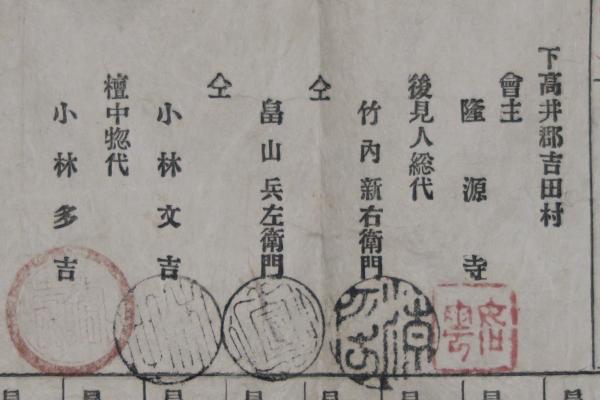 下高井郡吉田村
會主
隆源寺
後見人総代
竹內新右衛門
仝
畠山兵左衛門
仝
小林文吉
檀中惣代
小林多吉